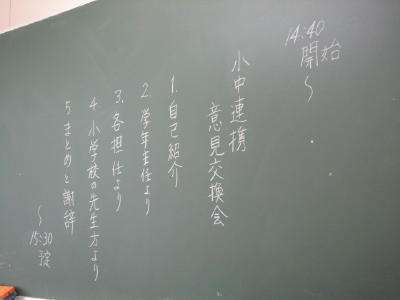 14:40
開始
〜
小中連携
意見交換会
1. 自己紹介
2. 学年主任より
3. 各担任より
4. 小学校の先生方より
5. まとめと謝辞
〜
15:30